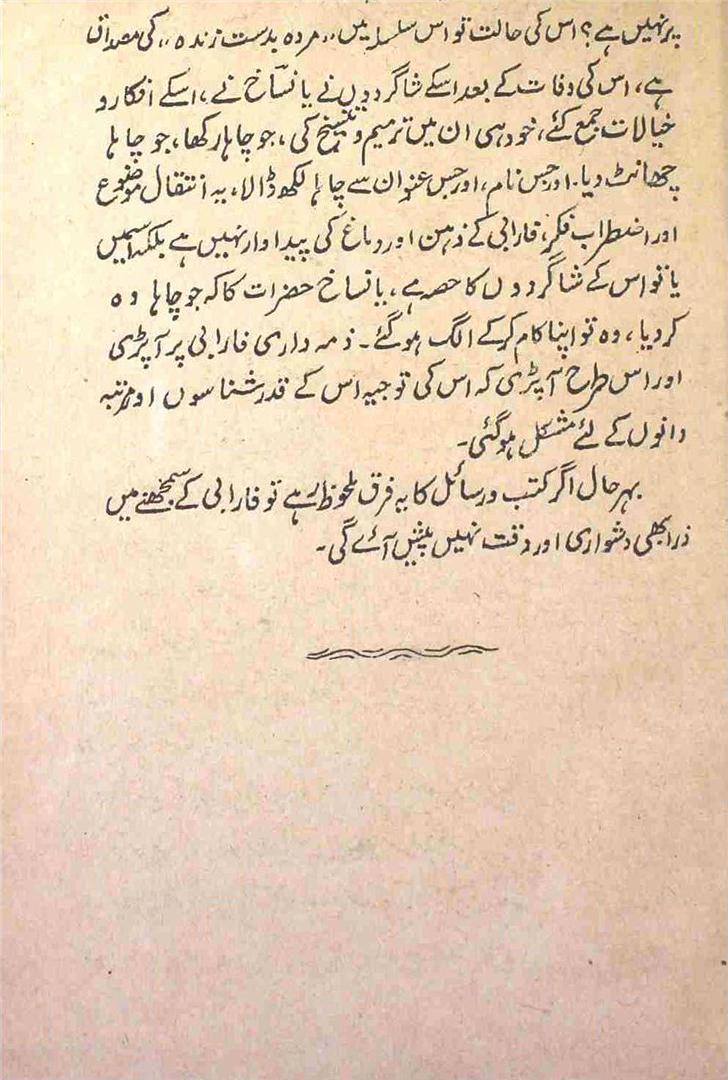 پر نہیں ہے؟ اس کی حالت تو اس سلسلہ میں ،،مردہ بدست زندہ،، کی مصداق
ہے، اس کی وفات کے بعد اسکے شاگردوں نے یا نسّاخ نے، اسکے افکار و
خیالات جمع کئے، خود ہی ان میں ترمیم و تنسیخ کی، جو چاہا رکھا، جو چاہا
چھانٹ دیا۔ اور جس نام، اور جس عنوان سے چاہا لکھ ڈالا، یہ انتقال موضوع
اور اضطراب فکر، فارابی کے ذہن اور دماغ کی پیداوار نہیں ہے بلکہ اسمیں
یا تو اس کے شاگردوں کا حصہ ہے، یا نساخ حضرات کا کہ جو چاہا وہ
کر دیا، وہ تو اپنا کام کر کے الگ ہو گئے۔ ذمہ داری فارابی پر آپڑی
اور اس طرح آپڑی کہ اس کی توجیہ اس کے قدر شناسوں اور مرتبہ
دانوں کے لئے مشکل ہو گئی۔
بہر حال اگر کتب و رسائل کا یہ فرق ملحوظ رہے تو فارابی کے سمجھنے میں
ذرا بھی دشواری اور دقت نہیں پیش آئے گی۔